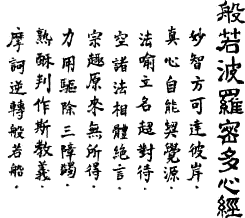 般若波羅密多心經
妙智方可達彼岸.
真心自能契覺源.
法喻立名超對待.
空諸法相體絕言.
宗趣原來無所得.
力用驅除三障蠲.
熟酥判作斯教義.
摩訶逆轉般若船.